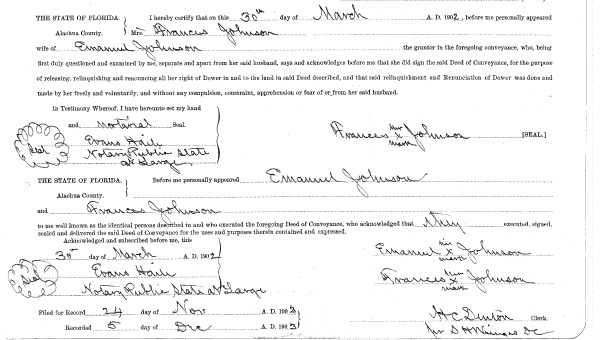 THE STATE OF FLORIDA. } I hereby certify that on this 30th day of March A. D. 1902, before me personally appeared
Alachua County. Mrs Frances Johnson
wife of Emanuel Johnson the grantor in the foregoing conveyance, who, being
first duly questioned and examined by me, separate and apart from her said husband, says and acknowledges before me that she did sign the said Deed of Conveyance, for the purpose
of releasing, relinquishing and renouncing all her right of Dower in and to the land in said Deed described, and that said relinquishment and Renunciation of Dower was done and
made by her freely and voluntarily, and without any compulsion, constraint, apprehension or fear of or from her said husband.
In Testimony Whereof, I have hereunto set my hand
and notarial Seal
Seal Evans Haile
Notary Public State
at Large
Frances her x mark Johnson [SEAL.]
THE STATE OF FLORIDA. } Before me personally appeared Emanuel Johnson
Alachua County.
and Frances Johnson
to me well known as the identical persons described in and who executed the foregoing Deed of Conveyance, who acknowledged that they executed, signed,
sealed and delivered the said Deed of Conveyance for the uses and purposes therein contained and expressed.
Acknowledged and subscribed before me, this
30th day of March A. D. 1902
Seal Evans Haile
Notary Public State at Large
Emanuel his x mark Johnson
Frances her x mark Johnson
Filed for Record 24 day of Nov A. D. 1903
Recorded 5 day of Dec A. D. 1903
H C Denton Clerk.
per S H Wienges DC